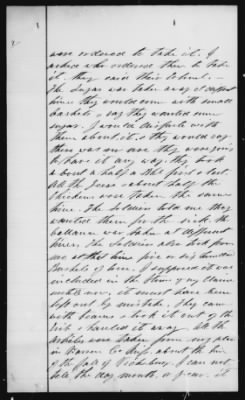 2
1
were ordered to take it. I
asked who ordered them to take
it. they said their Colonel. -
The Sugar was taken away at different
times they would come with small
baskets & say they wanted some
sugar. I would dispute with
them about it, & they would say
there was no use they were going
to have it any way. they took
about a half a bbl first & last.
All the Geese & about half the
Chickens were taken the same
time. The Soldiers told me they
wanted them for the sick the
ballance was taken at different
times. The Soldiers also took from
me at this time five or six hundred
Bushels of Corn. I supposed it was
included in the items of my Claim
until now, it must have been
left out by mistake. They came
with teams & took it out of the
Crib & hauled it away. All the
articles were taken from my place
in Warren Co Miss. about the time
of the fall of Vicksburg. I can not
state the day, month, or year. it